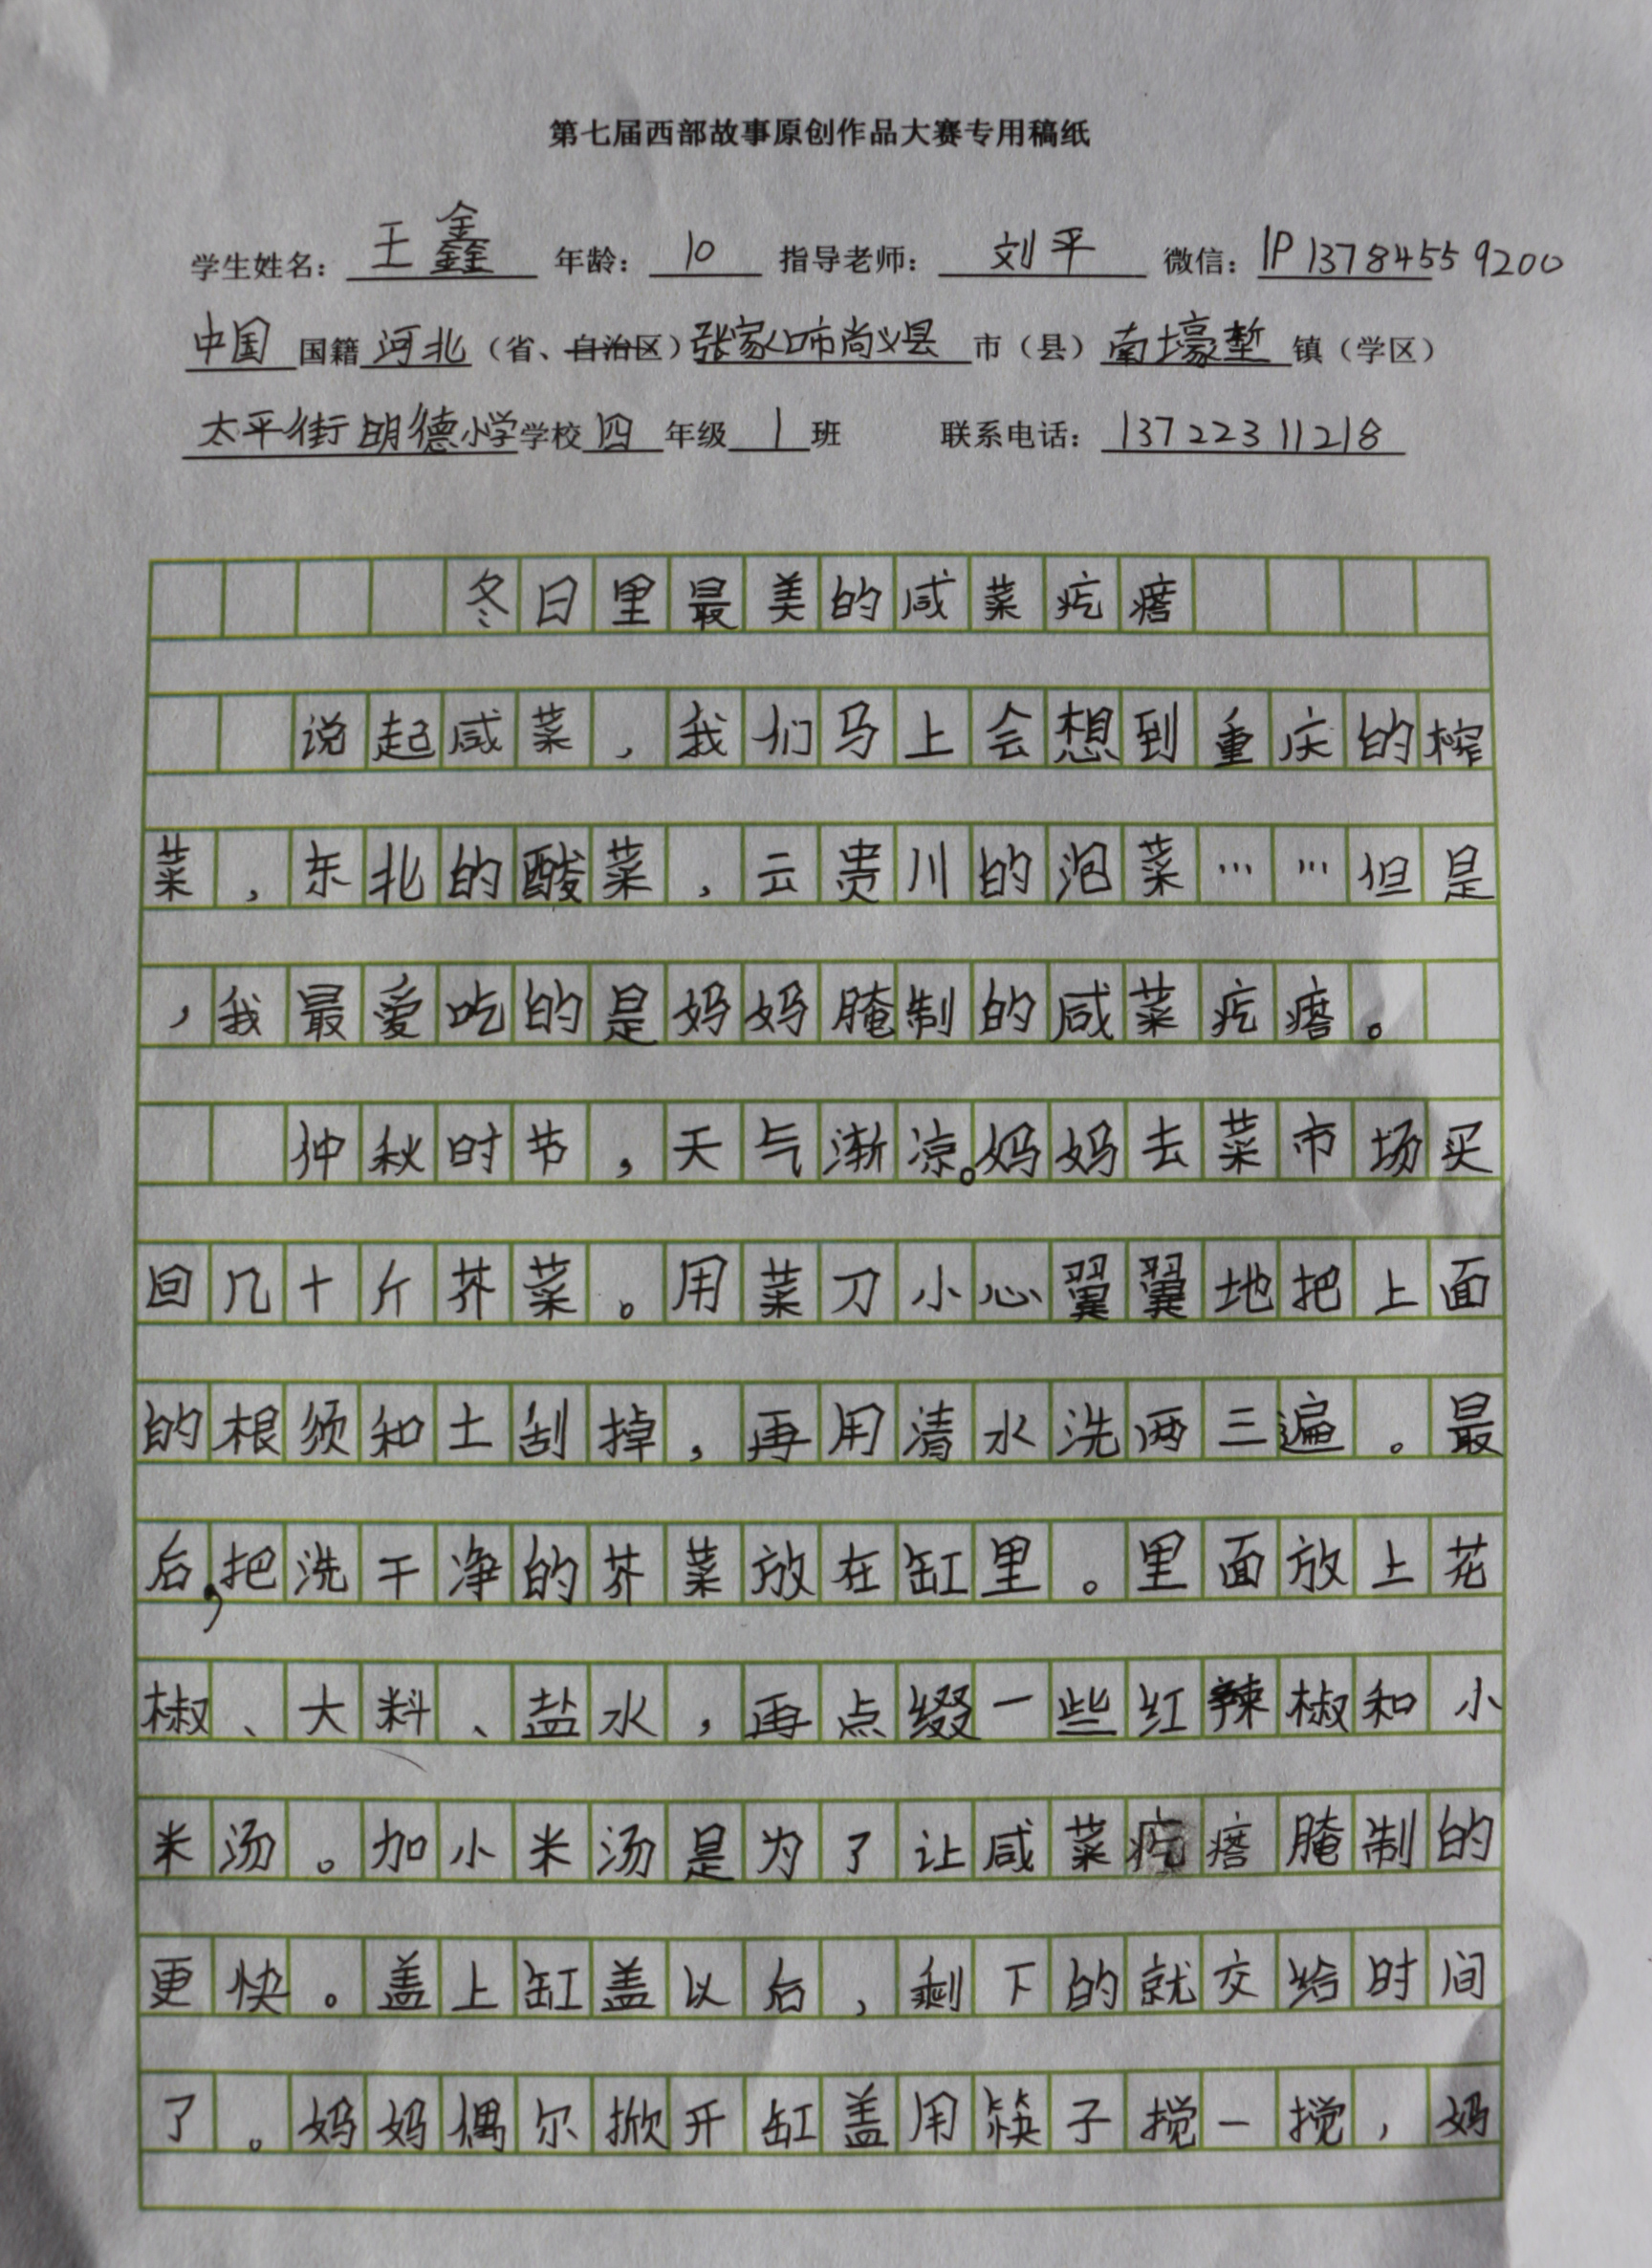 第七届西部故事原创作品大赛专用稿纸
学生姓名：王鑫 年龄：10 指导老师：刘平 微信：lP13784559200
中国国籍河北（省、自治区）张家口市尚义县市（县）南壕堑镇（学区）
太平街明德小学学校四年级1班 联系电话：13722311218
冬日里最美的咸菜疙瘩
说起咸菜，我们马上会想到重庆的榨
菜，东北的酸菜，云贵川的泡菜……但是
，我最爱吃的是妈妈腌制的咸菜疙瘩。
仲秋时节，天气渐凉。妈妈去菜市场买
回几十斤芥菜。用菜刀小心翼翼地把上面
的根须和土刮掉，再用清水洗两三遍。最
后，把洗干净的芥菜放在缸里。里面放上花
椒、大料、盐水，再点缀一些红辣椒和小
米汤。加小米汤是为了让咸菜疙瘩腌制的
更快。盖上缸盖以后，剩下的就交给时间
了。妈妈偶尔掀开缸盖用筷子搅一搅，妈